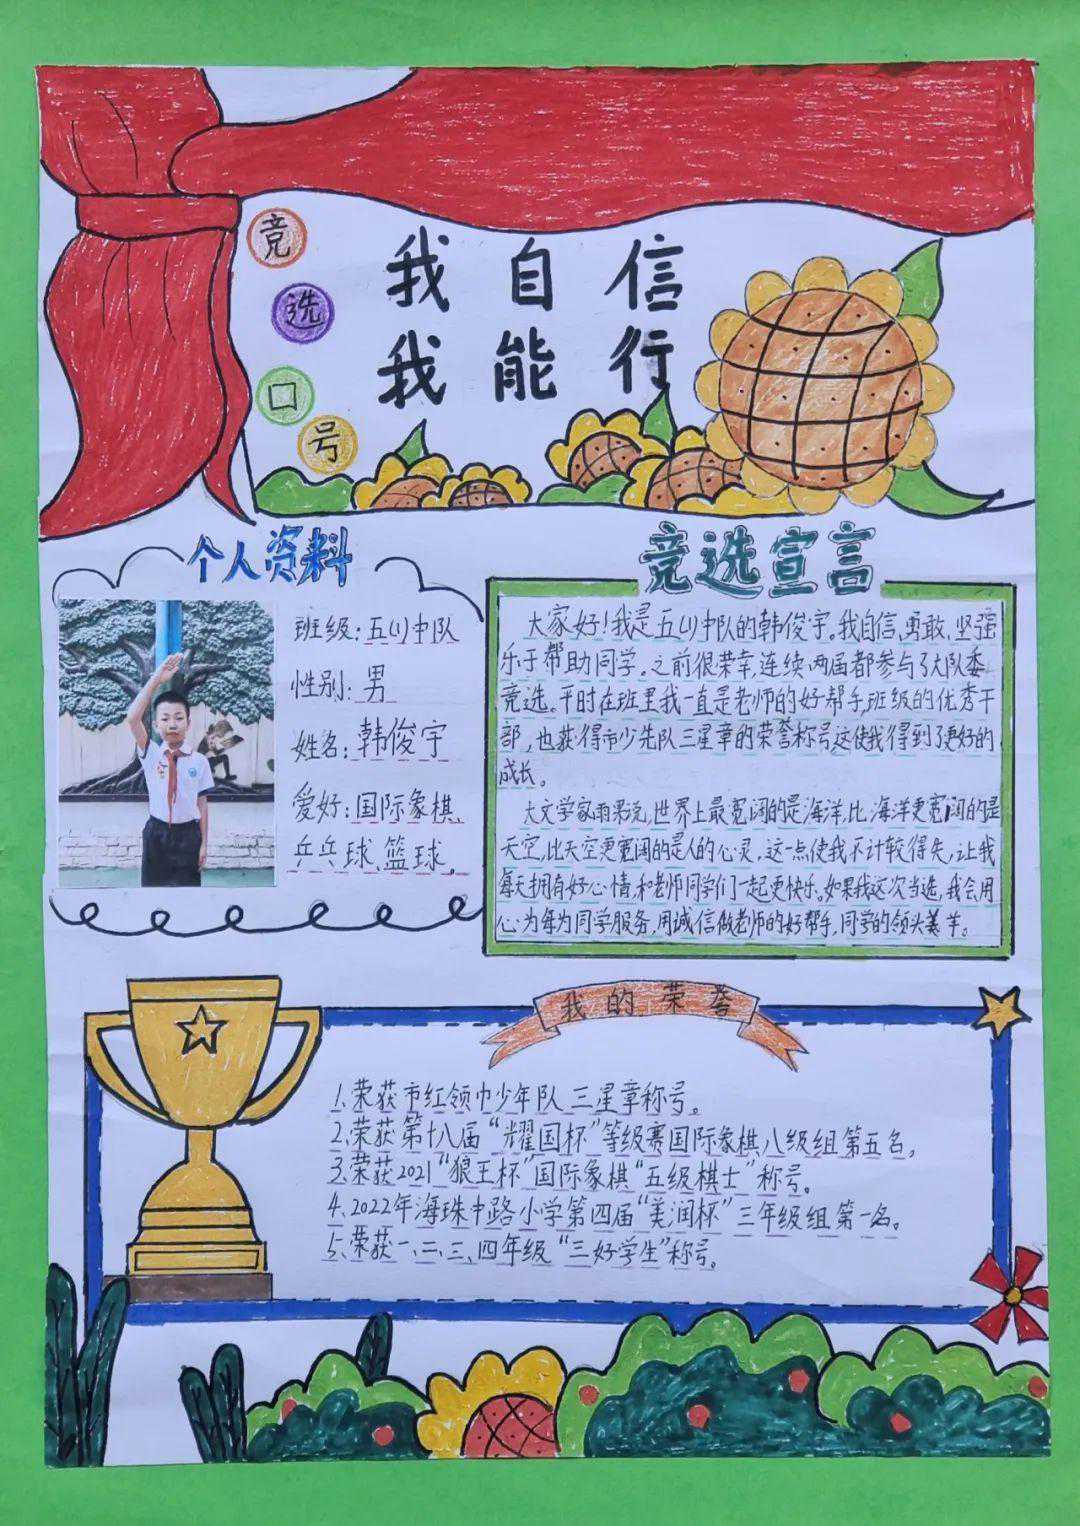 竞选口号
我自信
我能行
个人资料
班级:五(1)中队
性别:男
姓名:韩俊宇
爱好:国际象棋、
乒乓球、篮球。
竞选宣言
大家好!我是五(1)中队的韩俊宇。我自信、勇敢、坚强
乐于帮助同学。之前很荣幸,连续两届都参与了大队委
竞选。平时在班里我一直是老师的好帮手,班级的优秀干
部,也获得市少先队三星章的荣誉称号这使我得到了更好的
成长。
大文学家雨果说,世界上最宽阔的是海洋,比海洋更宽阔的是
天空,比天空更宽阔的是人的心灵,这一点使我不计较得失,让我
每天拥有好心情,和老师同学们一起更快乐。如果我这次当选,我会用
心为每为同学服务,用诚信做老师的好帮手,同学的领头羊。
我的荣誉
1、荣获市红领巾少年队三星章称号。
2、荣获第十八届“耀国杯”等级赛国际象棋八级组第五名,
3、荣获2021“狼王杯”国际象棋“五级棋士”称号。
4、2022年海珠中路小学第四届“美润杯”三年级组第一名。
5、荣获一、二、三、四年级“三好学生”称号。